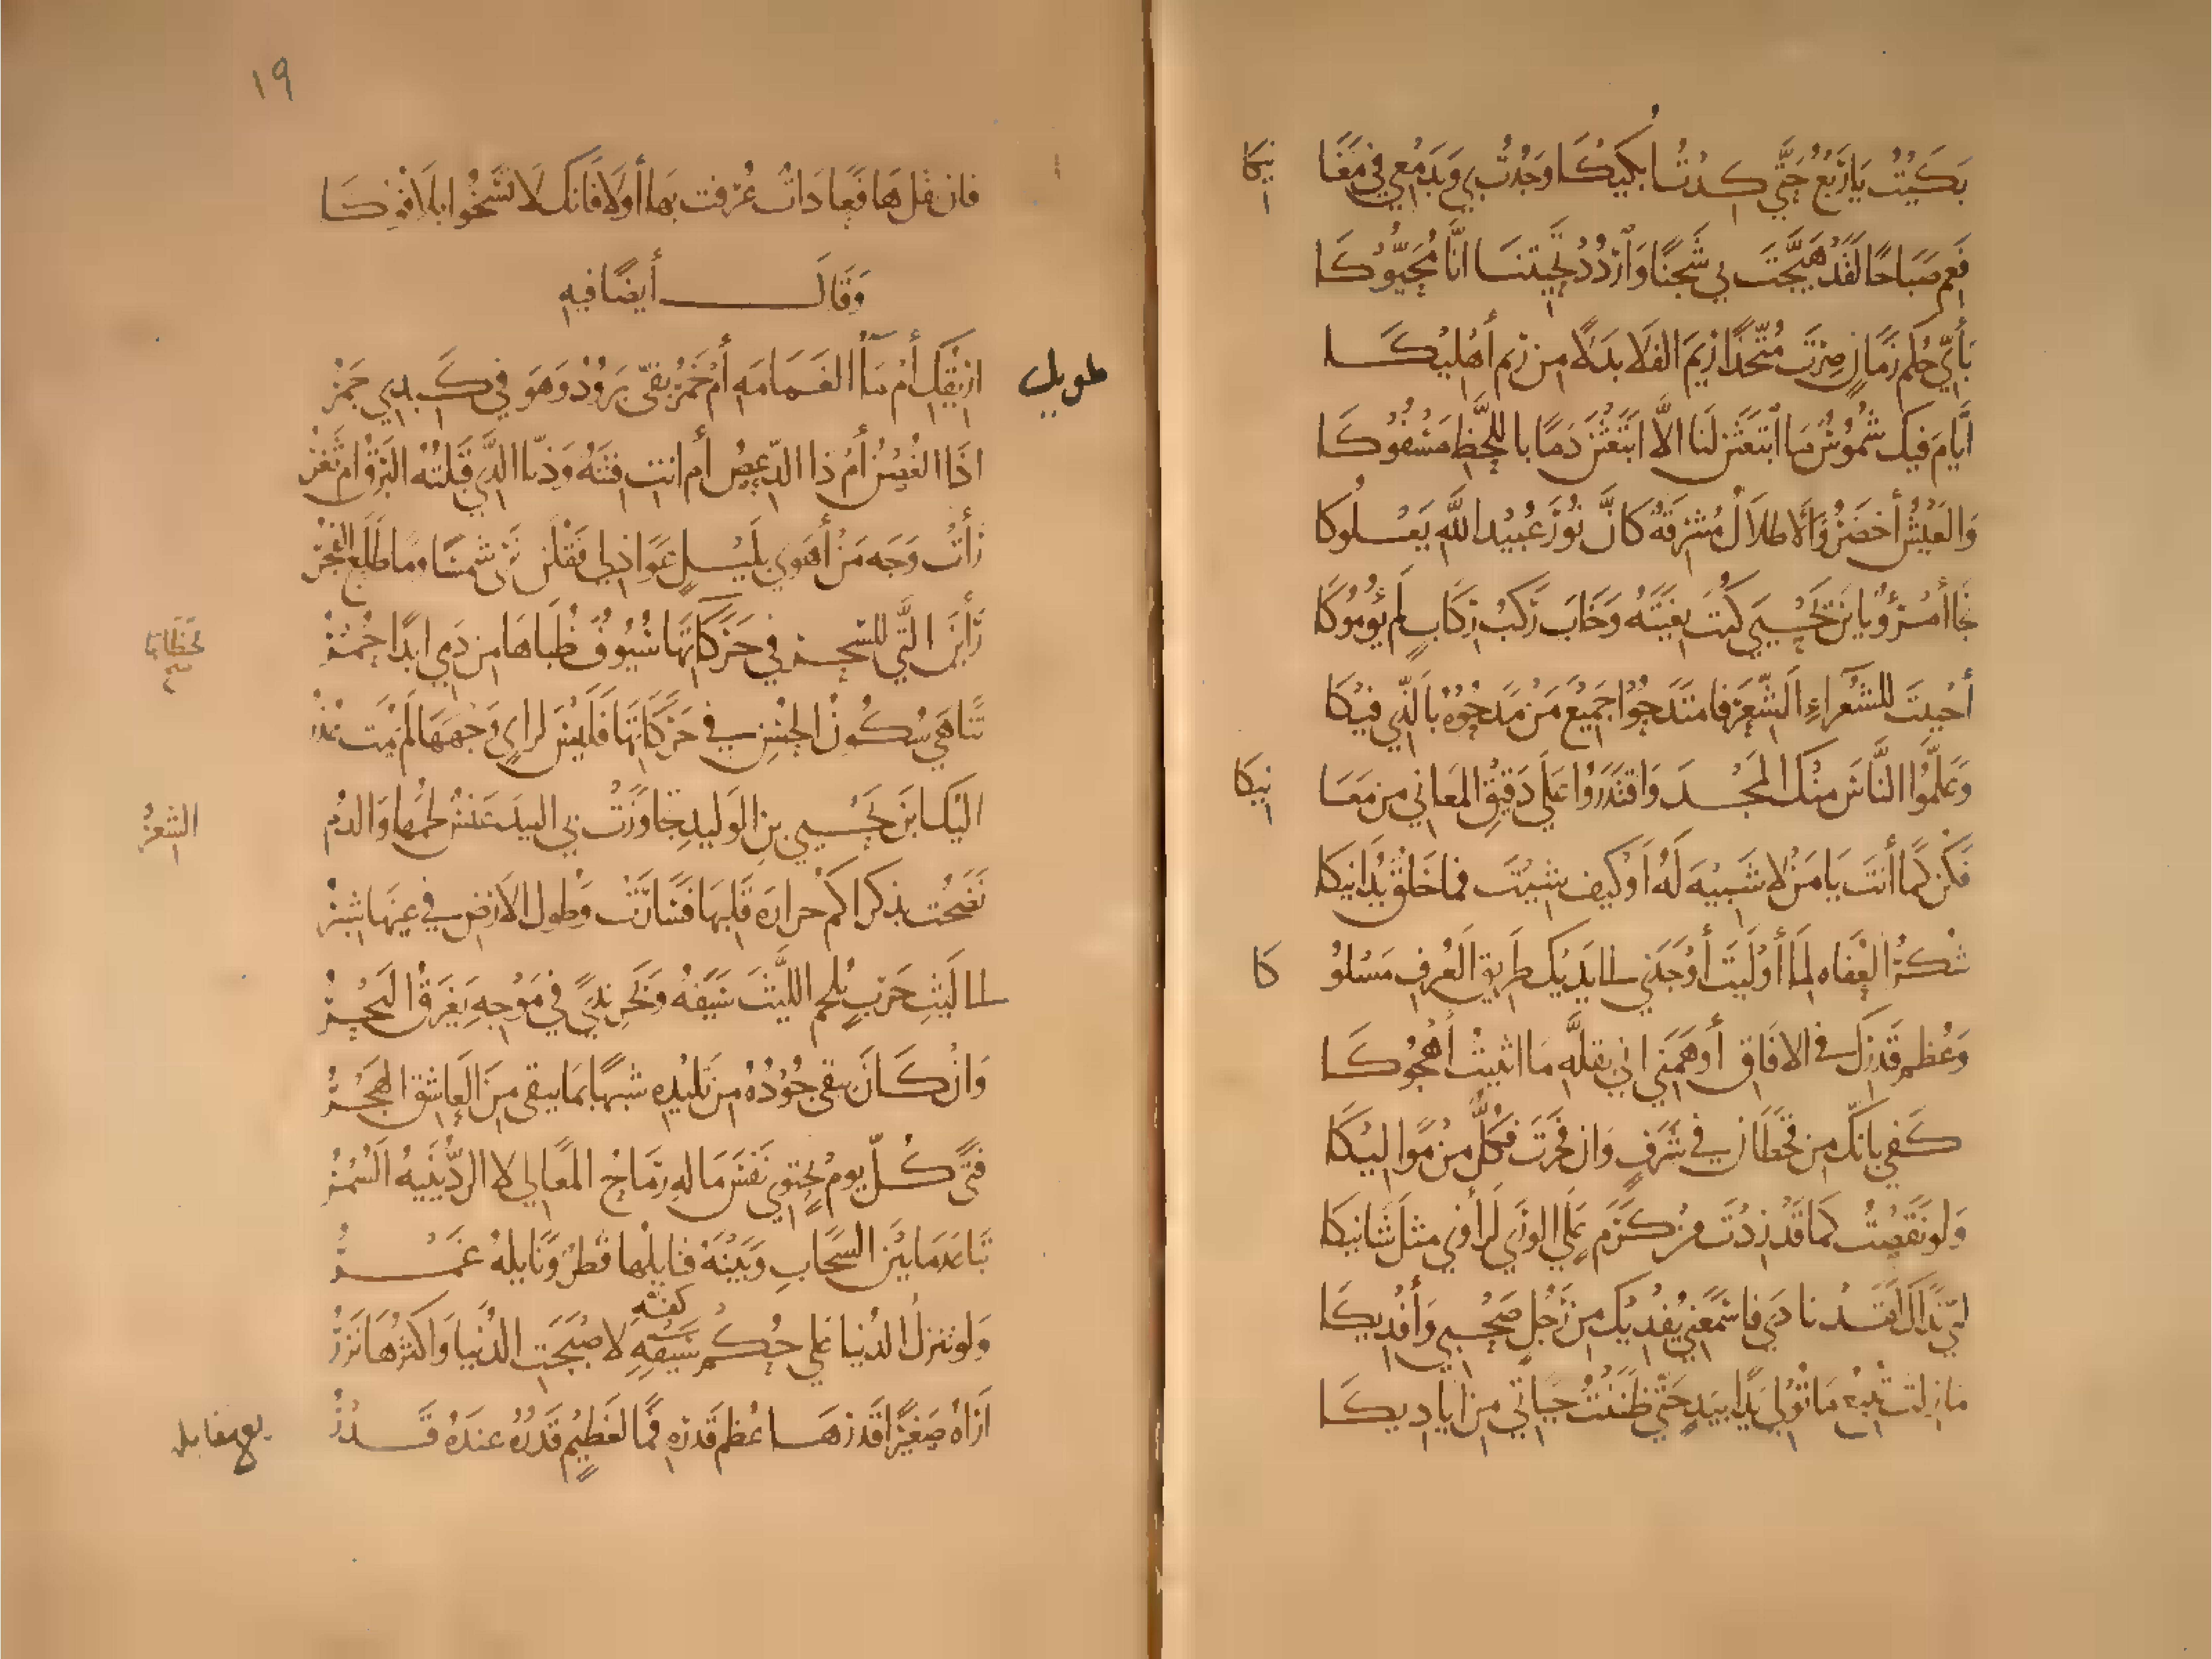 بَكَيْتُ يَا رَبْعُ حَتَّى كِدْتُ ابكِيكَا وَجُدْتُ بِي وَبِدَمْعِي فِي مَغَانِيكَا
فَعِمْ صَبَاحًا لَقَدْ هَيَّجْتَ لِي شَجَنًا وَارْدُدْ تَحِيَّتَنَا انَّا مُحَيُّوكَا
بَأَيِّ حُكْمِ زَمَانٍ صِرْتَ مُتَّخِذًا رِيمَ الفَلَا بَدَلًا مِن رِيمِ أَهْلِيكَا
أيَّامَ فِيكَ شُمُوسٌ مَا ابْتَعَثْنَ لَنَا الَّا ابْتَعَثْنَ دَمًا بِاللَّحْظِ مَسْفُوكَا
وَالعَيْشُ أَخضَرُ وَالاطلَالُ مُشْرِقَةٌ كَانَّ نُورَ عُبَيْدِ اللَّهِ يَعْلُوكَا
نجَا أمْرُؤٌ يَا بْنَ يَحْيَى كُنْتَ بِغْيَتَهُ وَخَابَ رَكْبُ رِكَابٍ لَم يَؤُمُّوكَا
أَحْيَيْتَ للشُّعَرَاءِ الشِّعْرَ فامْتَدَحُوا جَمِيعَ مَنْ مَدَحُوهُ بِالَّذِي فِيكَا
وَعَلَّمُوا النَّاسَ مِنْكَ المَجْدَ وَاقتَدَرُوا عَلَى دَقِيقِ المَعَانِي مِن مَعَانِيكَا
فَكُنْ كَمَا أَنْتَ يَا مَنْ لَا شَبِيهَ لَهُ أَوْ كَيفَ شِيتَ فَمَا خَلْقٌ يُدَانِيكَا
شُكْرُ العُفَاهِ لِمَا أَوْلَيْتَ أَوْجَدَنِي الى يَدَيْكَ طَرِيقَ العُرْفِ مَسْلُوكَا
وَعُظْمُ قَدْرِكَ فِي الافَاقِ أَوهَمَنِي انِّي بِقِلَّةِ مَا اثْنَيْتُ أَهْجُوكَا
كَفَى بِانَّكَ مِن قَحْطَانَ فِي شَرَفٍ وَان فَخَرْتَ فَكُلٌّ مِنْ مَوَالِيكَا
وَلَو نَقَصْتُ كَمَا قَدْ زِدْتَ مِنْ كَرَمٍ عَلَى الوَرَى لَرَأَوْنِي مِثْلَ شَانِيكَا
لَبَّى نَدَاكَ لَقَدْ نَادَى فَاسْمَعَنِي يَفْدِيكَ مِن رَجُلٍ صَحْبِي وَأَفْدِيكَا
مَا زِلْتَ تُتْبِعُ مَا تُولِي يَدًا بِيَدٍ حَتَّى ظَنَنْتُ حَيَاتِي مِن ايَادِيكَا
١٩
فان تقُل هَا فَعَادَاتٌ عُرِفْتَ بِهَا أولَا فَانَّكَ لَا تَسْخُوا بِلَا فُوكَا
وَقَالَ أيضًا فيهِ
طويل
ارِيقُكِ أَمْ مَاءُ الغَمَامَةِ أَمْ خَمْرُ بِفِيَّ بَرُودٌ وَهوَ فِي كَبِدِي جَمْرُ
اذَا الغُصْنُ أَمْ ذَا الدِّعصُ أم انتِ فِتْنَةٌ وَذَيَّا الَّذِي قَبَّلْتُهُ البَرْقُ ام ثَغْرُ
رَأَتْ وَجْهَ مَنْ أَهْوَى بِلَيْلٍ عَوَاذِلِي فَقُلْنَ نَرَى شَمْسًا وَمَا طَلَعَ الفَجْرُ
رَأَيْنَ الَّتِي للسِّحْرِ فِي حَرَكَاتِهَا سُيُوفٌ ظُبَاهَا مِن دَمِي ابَدًا حُمْرُ
لحَظَاتِهَا
تَنَاهَى سُكُونُ الحُسْنِ فِي حَرَكَاتِهَا فَلَيْسَ لِرَاى وَجْهِهَا لَم يَمُت عُذْرُ
اليْكَ ابْنَ يَحْيَى بنِ الوَلِيدِ تَجَاوَزَتْ بِيَ البِيدَ عَنْسٌ لَحْمُهَا وَالدَّمُ الشِّعْرُ
نَضَحْتُ بِذِكْرَاكُمْ حرارَةَ قَلْبِهَا فَسَارَتْ وَطُولُ الارْضِ فِي عَيْنِهَا شِبْرُ
الى لَيْثِ حَرْبٍ يُلْحِمُ اللَّيْثَ سَيْفَهُ وَبَحْرِ نَدًى فِي مَوْجِهِ يَغْرَقُ البَحْرُ
وَانْ كَانَ يُبْقِي جُودُهُ مِن تَلِيدِهِ شَبِيهًا بِمَا يبقي مِنَ العَاشِقِ الهَجْرُ
فَتًى كُلَّ يَوْمٍ يَحْتَوِي نَفْسَ مَالِهِ رِمَاحُ المَعَالِي لا الرُّدَيْنِيَّهُ السُّمْرُ
تَبَاعَدَ مَا بَيْنَ السَّحَابِ وَبَيْنَهُ فَنَايلُهَا قَطْرٌ وَنَايلُهُ غَمْرُ
وَلَو تنزِلُ الدُّنيَا عَلَى حُكْمِ سَيْفِهِ لاصْبَحَتِ الدُّنيَا وَاكْثَرُهَا نَزْرُ
كفِّهِ
ارَاهُ صَغِيرًا قَدْرَهَا عُظْمُ قَدْرِهِ فَمَا لِعَظِيمٍ قَدْرُهُ عِنْدَهُ قَدْرُ